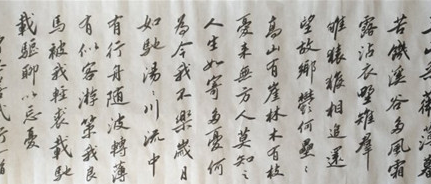 山采薇薄暮
苦饑溪谷多風霜
露沾衣野雉羣
雊猿猴相追還
望故鄉鬱何壘々
高山有崖林木有枝
憂来無方人莫知之
人生如寄多憂何
為今我不樂歲月
如馳湯々川流中
有行舟随波轉薄
有似客游策我良
馬被我輕裘載馳
載驅聊以忘憂